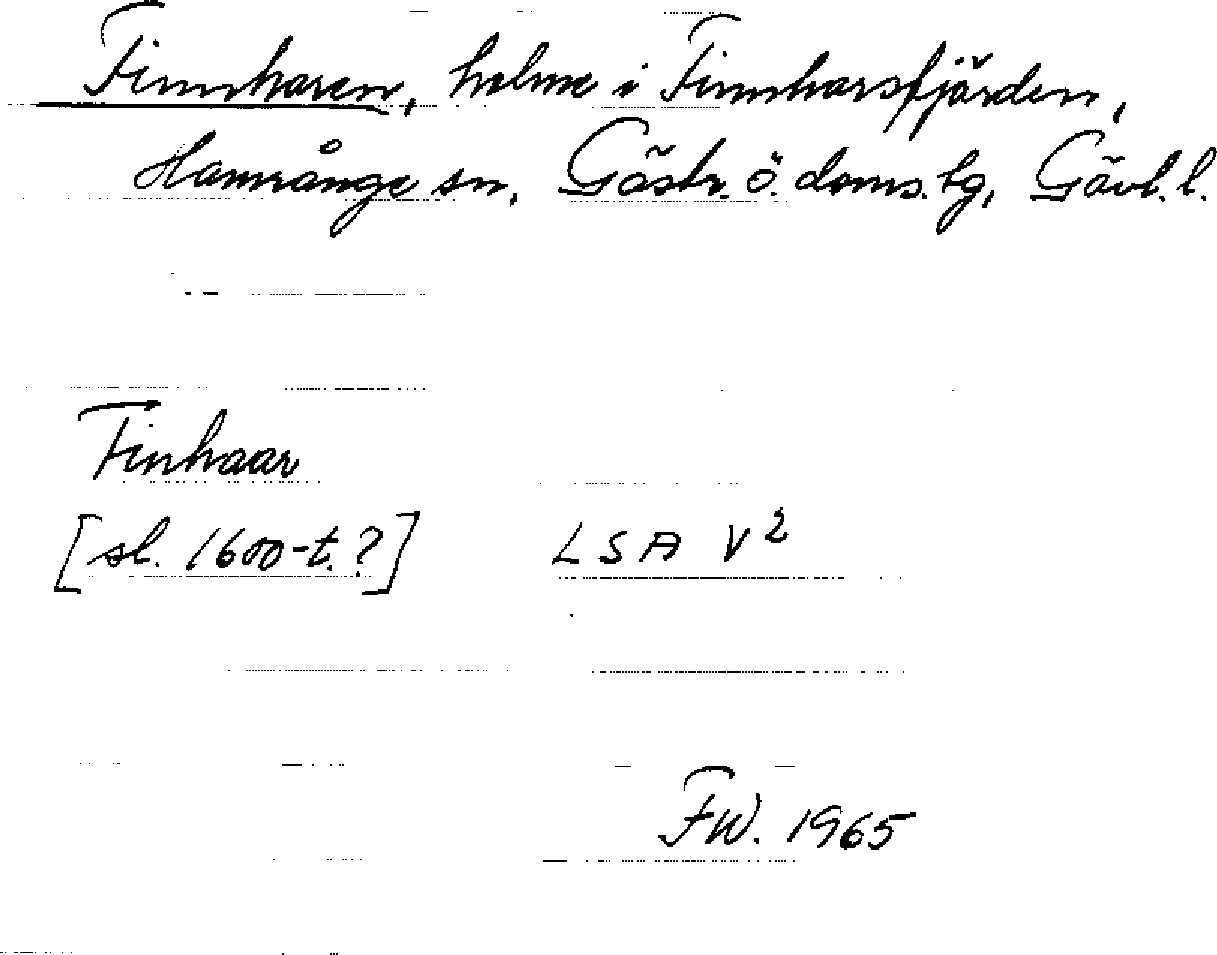 Finnharen, holme i Finnharsfjärden,
Hamrånge sn, Gästr. ö. doms.tg, Gävl. l.
Finhaar
[sl. 1600-t.?] LSA V²
FW. 1965